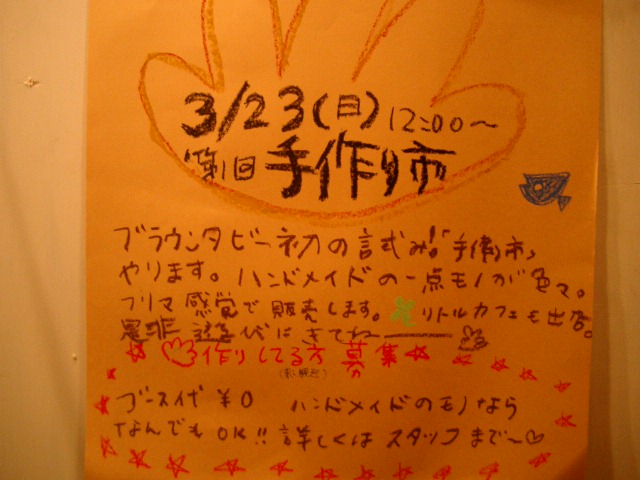 3/23(日)12:00〜
第1回 手作り市
ブラウンタビー初の試み!「手作り市」
やります。ハンドメイドの一点モノが色々。
フリマ感覚で販売します。リトルカフェも出店。
是非遊びにきてね
作りしてる方 募集
ブース代 ¥0 ハンドメイドのモノなら
なんでもOK!! 詳しくはスタッフまで〜♡